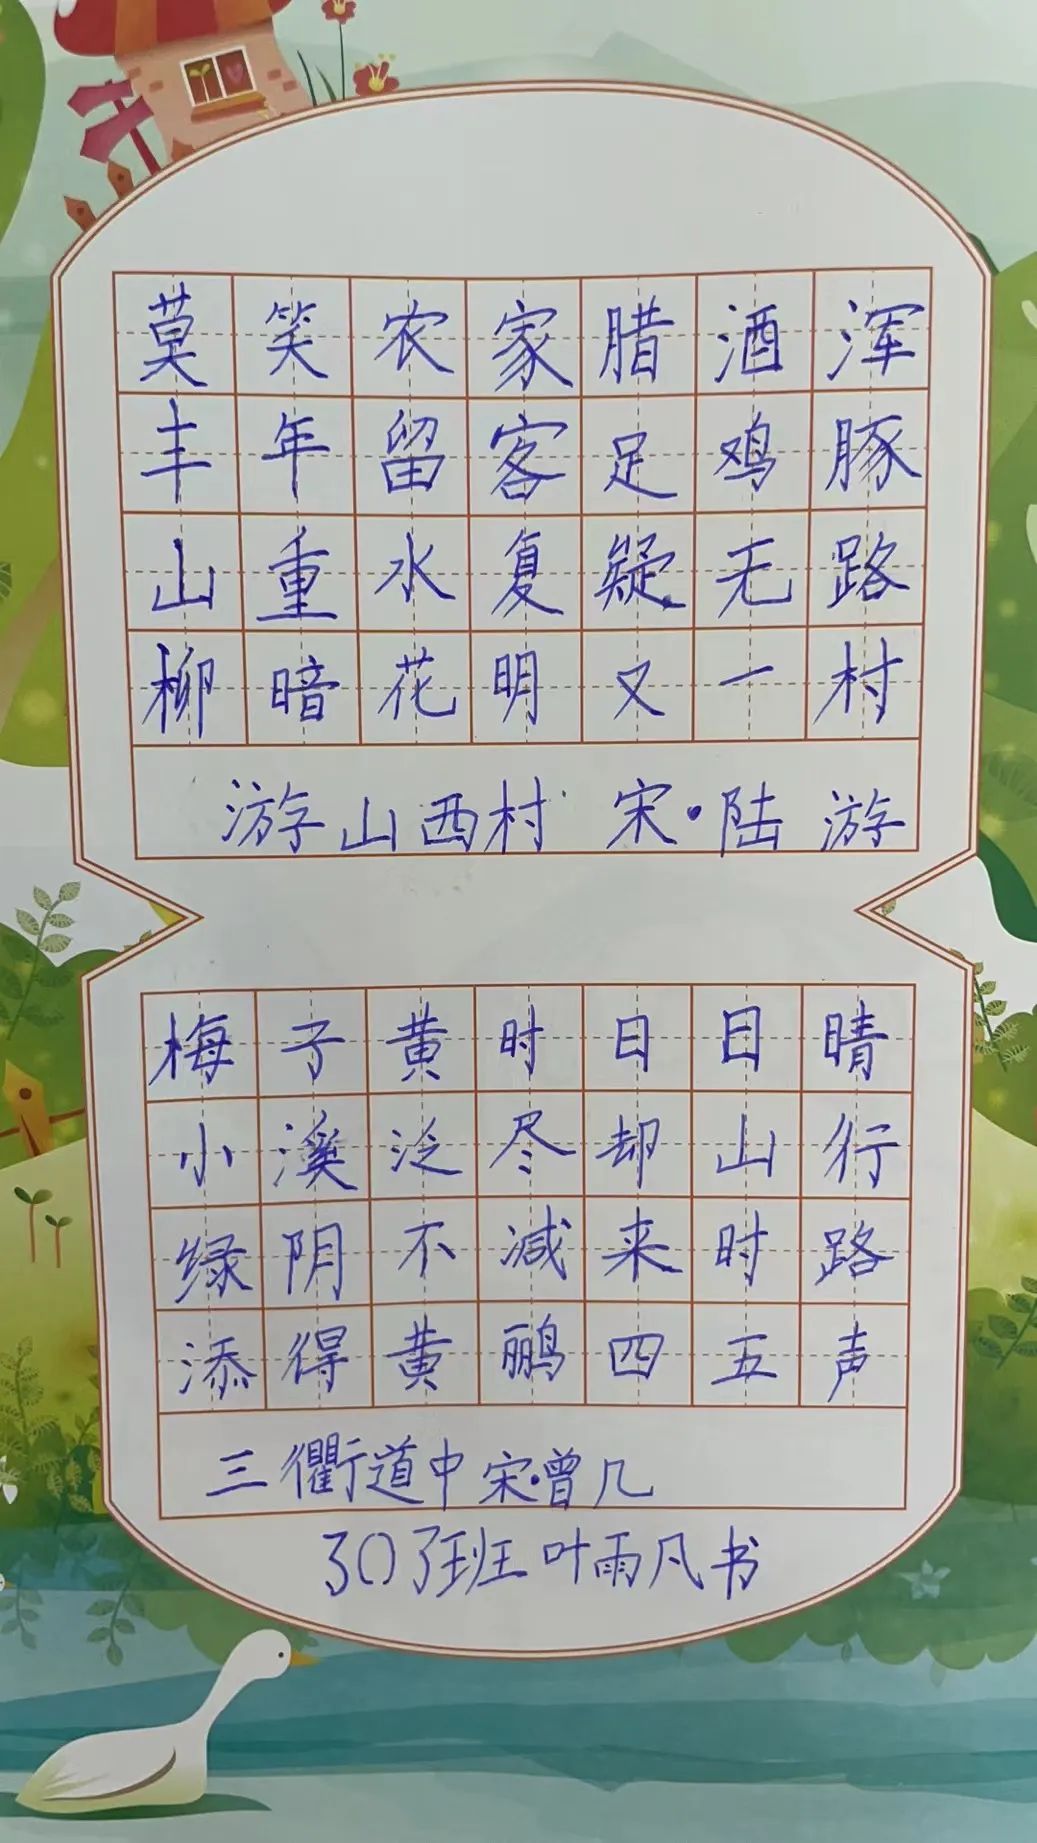 莫笑农家腊酒浑
丰年留客足鸡豚
山重水复疑无路
柳暗花明又一村
游山西村 宋·陆游
梅子黄时日日晴
小溪泛尽却山行
绿阴不减来时路
添得黄鹂四五声
三衢道中宋·曾几
303班叶雨凡书